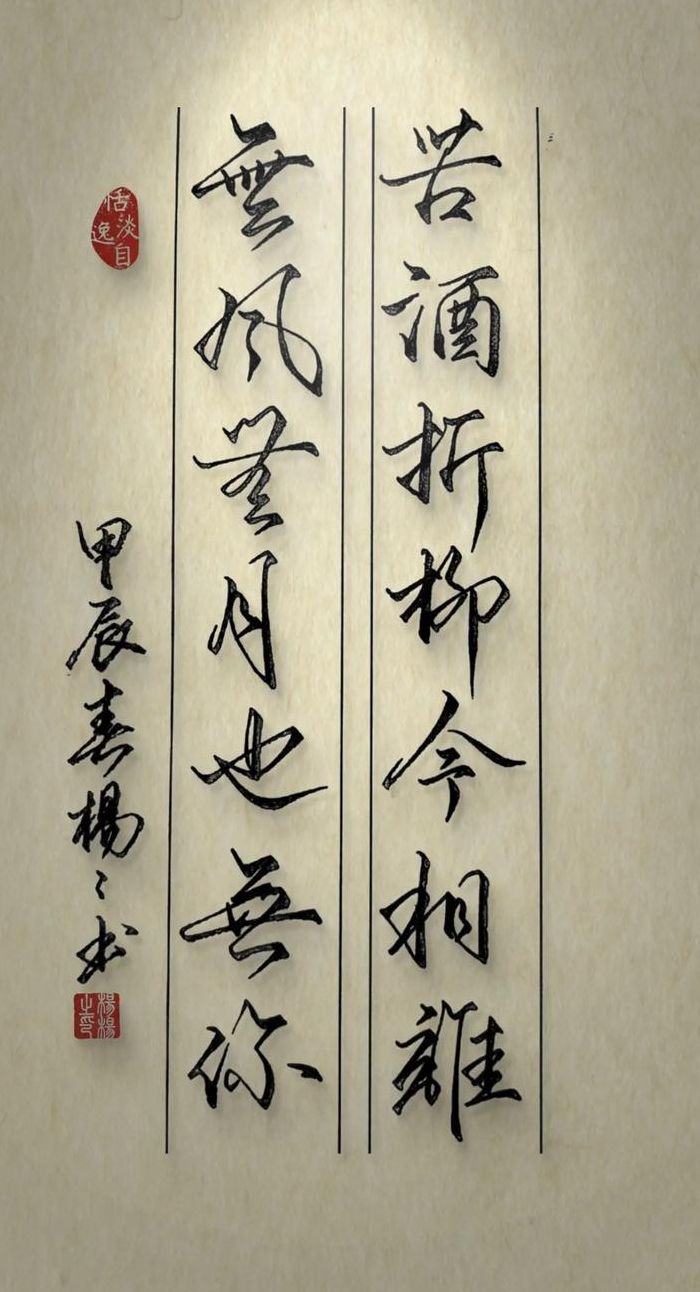 苦酒折柳今相離
無風無月也無你
甲辰春楊〻书
恬淡自逸
楊楊之印